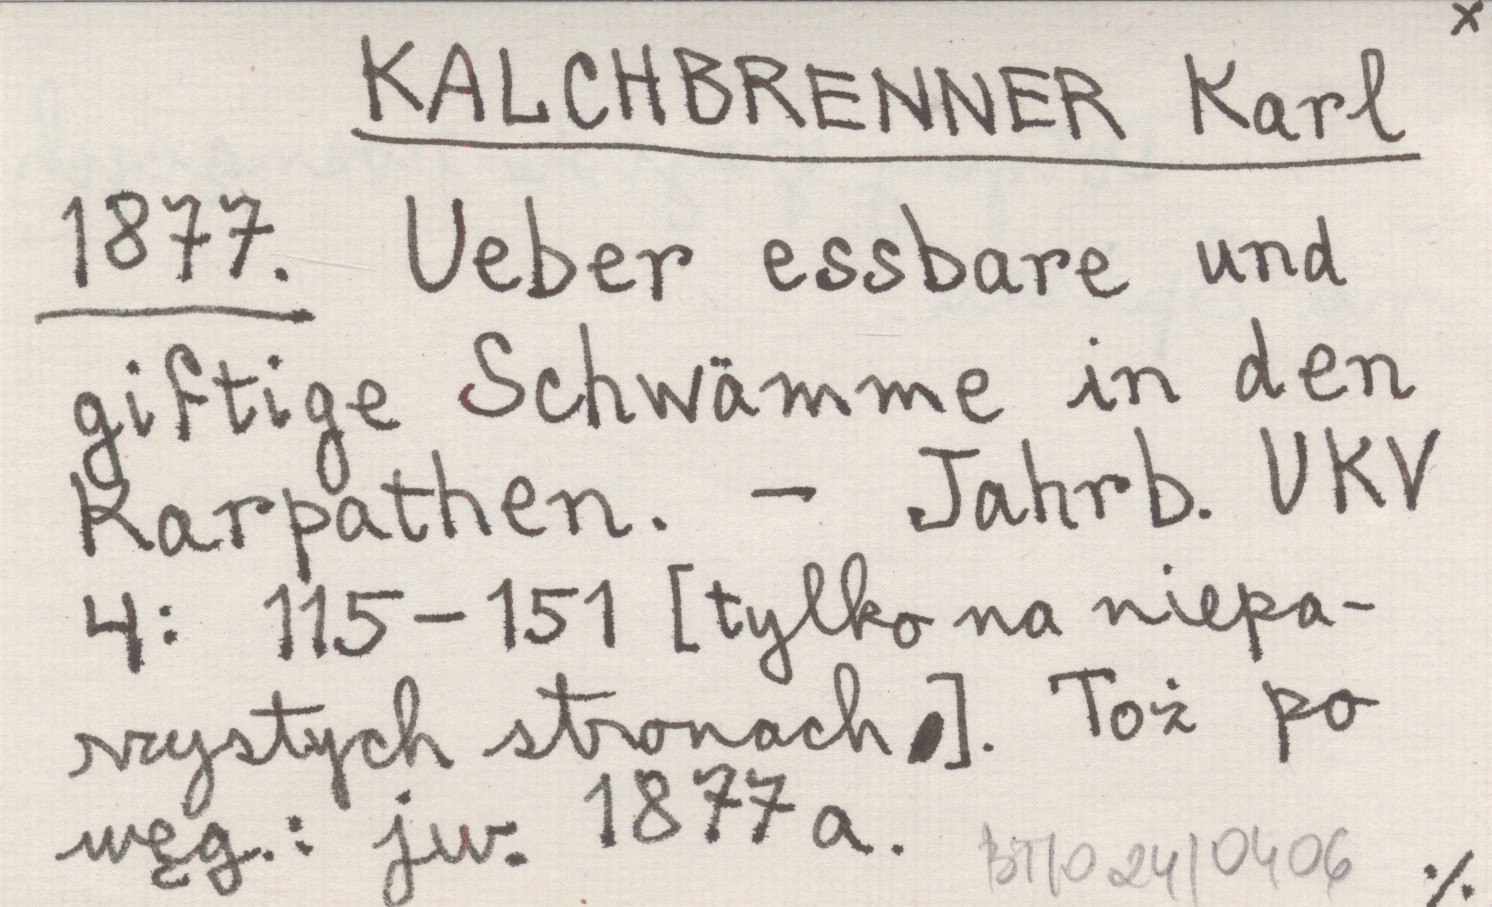 x
KALCHBRENNER Karl
1877. Ueber essbare und
giftige Schwämme in den
Karpathen. – Jahrb. UKV
4: 115–151 [tylko na niepa-
rzystych stronach]. Toż po
węg.: jw. 1877a.
BT/024/0406
·/.